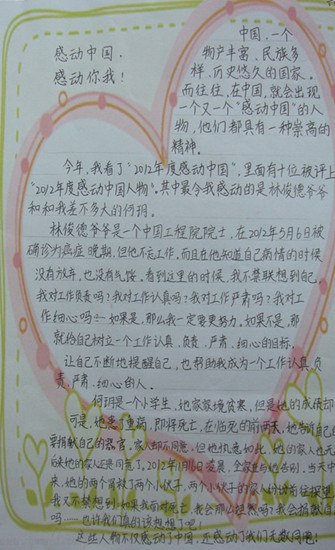 感动中国，
感动你我！
中国，一个
物产丰富、民族多
样、历史悠久的国家。
而往往，在中国，就会出现
一个又一个"感动中国"的人
物，他们都具有一种崇高的
精神。
今年，我看了"2012年度感动中国"，里面有十位被评上
"2012年度感动中国人物"。其中最令我感动的是林俊德爷爷
和和我差不多大的何玥。
林俊德爷爷是一个中国工程院院士，在2012年5月6日被
确诊为癌症晚期，但他不忘工作，而且在他知道自己病情的时候
没有放弃，也没有气馁。看到这里的时候，我不禁联想到自己，
我对工作负责吗？我对工作认真吗？我对工作严肃吗？我对工
作细心吗……如果是，那么我一定要更努力，如果不是，那
就给自己树立一个工作认真、负责、严肃、细心的目标，
让自己不断地提醒自己，也帮助我成为一个工作认真、负
责、严肃、细心的人。
何玥是一个小学生，她家家境贫寒，但是她的成绩却
可是，她患了重病，即将死亡，在临死的前两天，她告诉自己
要捐献自己的器官，家人却不同意，但她执意如此，她的家人也无
后来她的家人还是同意了，2012年11月16日凌晨，全家里与她告别，当天中
来，她的两个肾救了两个小伙子，两个小伙子的家人纷纷前往探望
我又不禁想到：如果我面对死亡，我会那么坦然吗？我会捐献自
吗……也许我们真的该想想了吧。
这些人物不仅感动了中国，还感动了我们无数同胞！